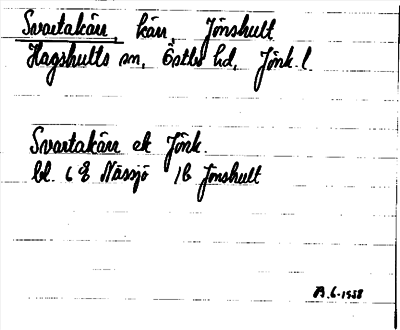 Svartakärr, kärr, Jönshult
Hagshults sn, Östbo hd, Jönk. l
Svartakärr ek Jönk.
bl. 6 8 Nässjö 1b Jönshult
A. 6-1538